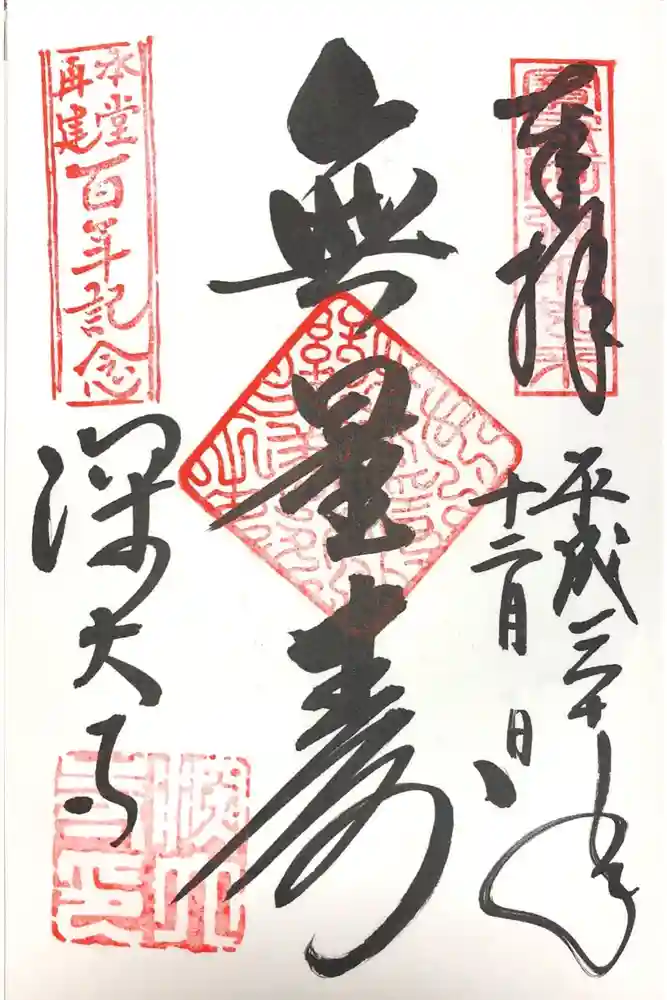 奉拝
平成三十年
十二月 日
無量寿
本堂
再建
百年記念
深大寺
深大
寺印